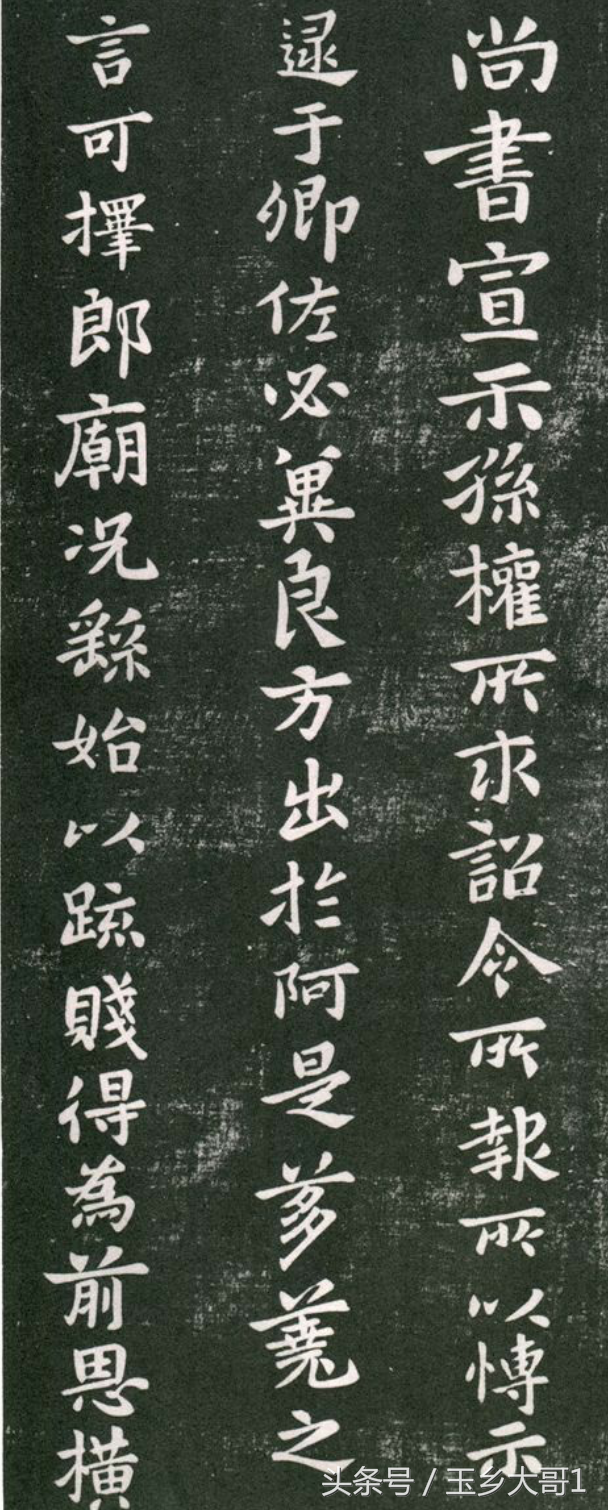 尚書宣示孫權所求詔令所報所以博示
逮于卿佐必冀良方出於阿是芻蕘之
言可擇郎廟況繇始以疏賤得為前恩橫
头条号 / 玉乡大哥1